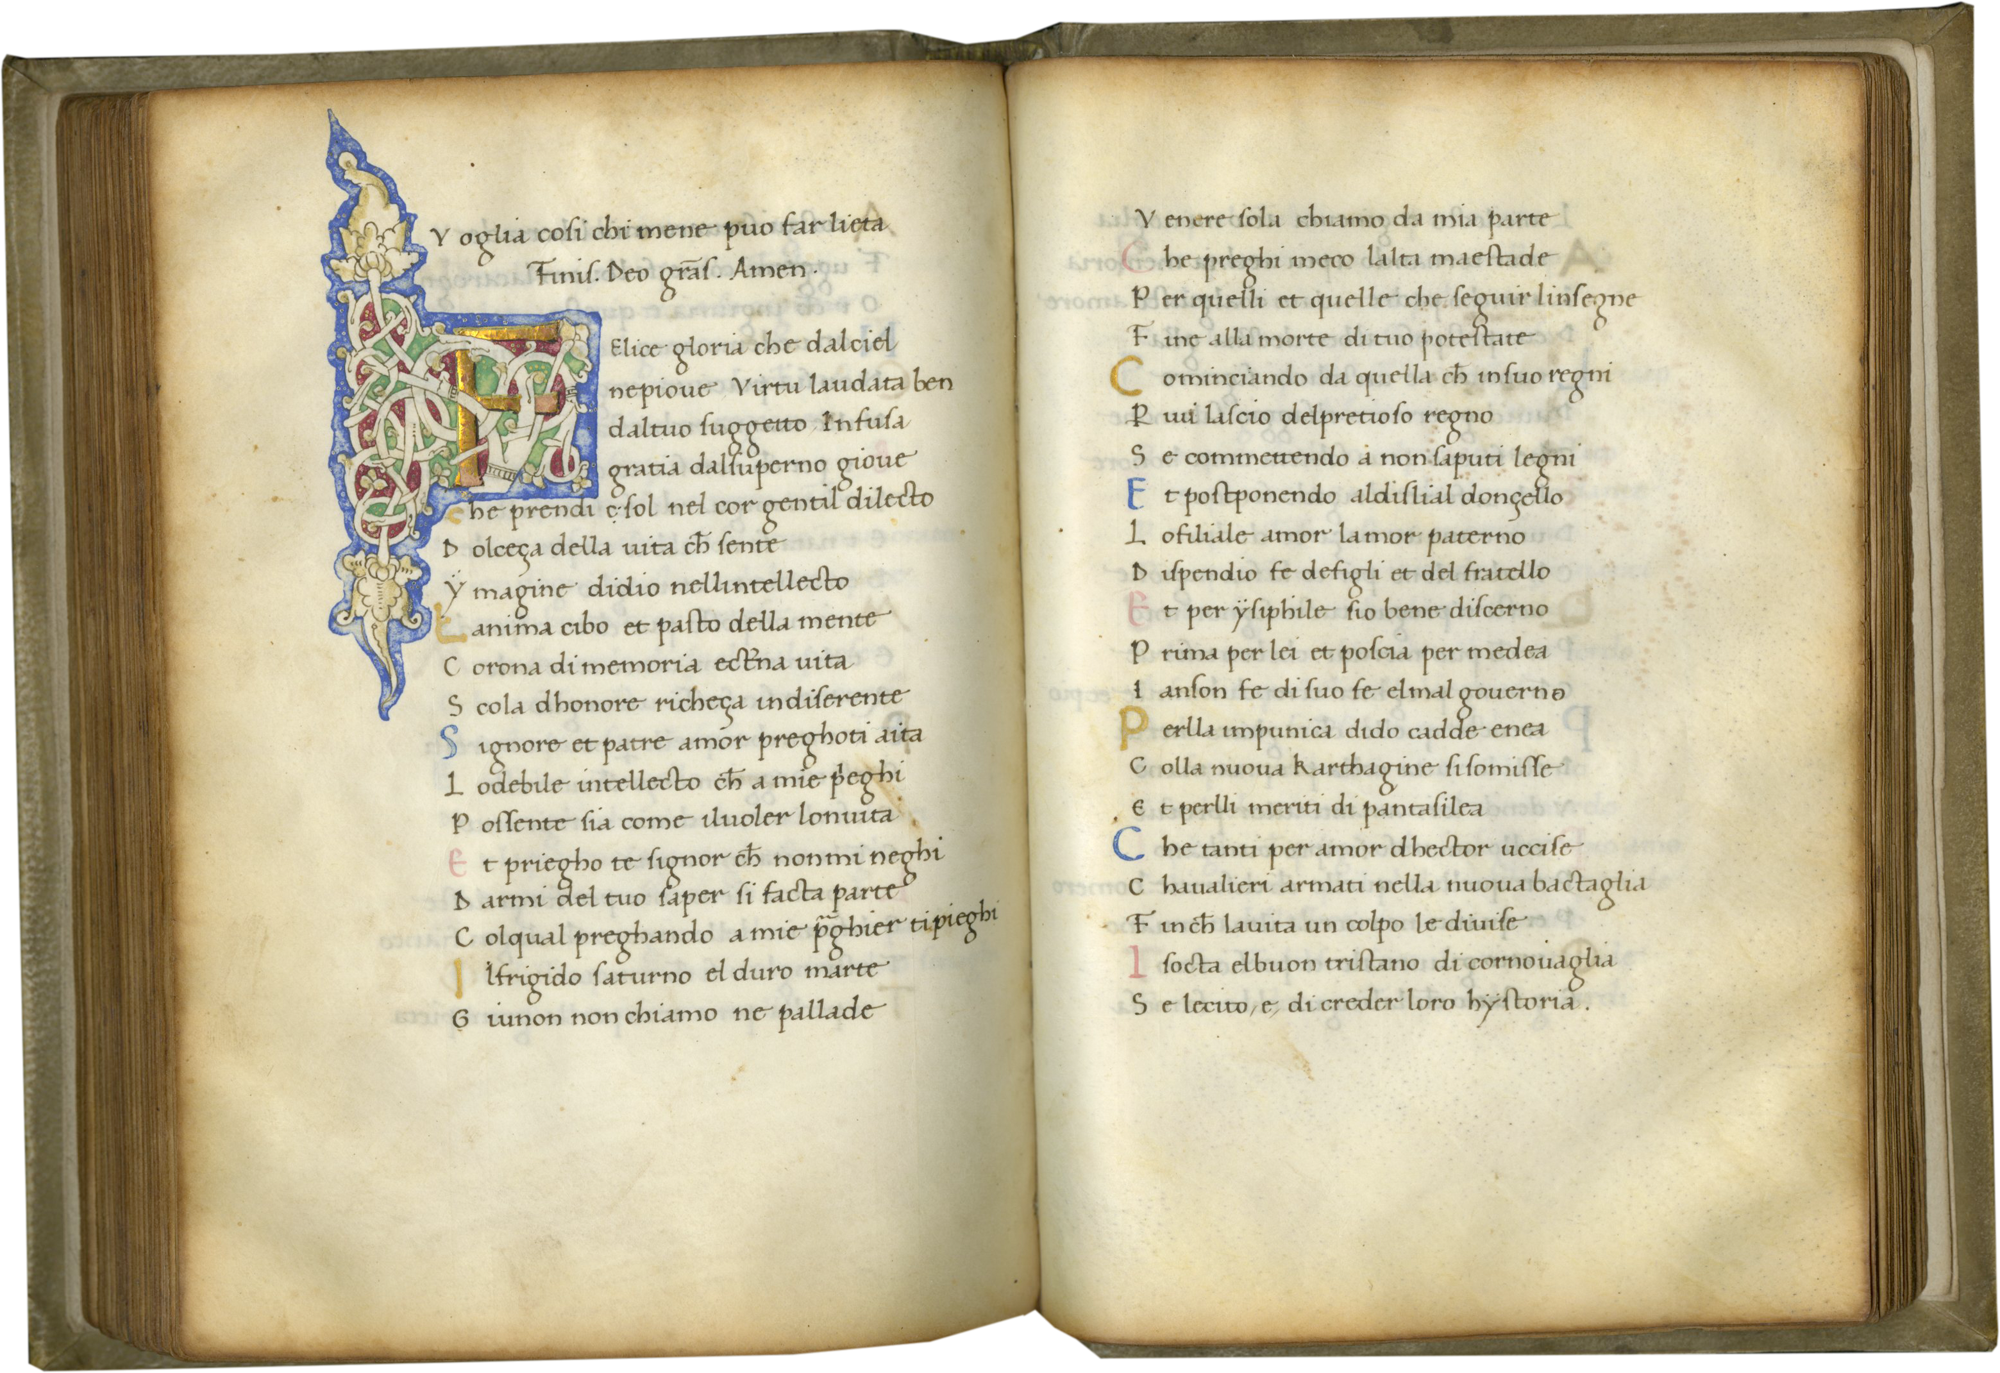 V oglia cosi chi mene puo far lieta
Finis. Deo gr̄as. Amen.
FElice gloria che dalciel
nepioue Virtu laudata ben
daltuo suggetto Infusa
gratia dalsuperno gioue
C he prendi ç sol nel cor gentil dilecto
D olceça della uita ch̄ sente
Ÿ magine didio nellintellecto
L anima cibo et pasto della mente
C orona di memoria ect̄na uita
S cola dhonore richeça indiferente
S ignore et patre amor preghoti aita
L odebile intellecto ch̄ a mie p̄eghi
P ossente sia come iluoler lonuita
E t priegho te signor ch̄ nonmi neghi
D armi del tuo saper si facta parte
C olqual preghando a mie p̄ghier ti pieghi
I lfrigido saturno el duro marte
G iunon non chiamo ne pallade
V enere sola chiamo da mia parte
C he preghi meco lalta maestade
P er quelli et quelle che seguir linsegne
F ine alla morte di tuo potestate
C ominciando da quella ch̄ in suo regni
R uui lascio delpretioso regno
S e commettendo a non saputi legni
E t postponendo aldislial donçello
L ofiliale amor lamor paterno
D ispendio fe defigli et del fratello
E t per ÿsiphile sio bene discerno
P rima per lei et poscia per medea
I anson fe di suo fe elmal governo
P erlla impunica dido cadde enea
C olla nuoua karthagine si somisse
E t perlli meriti di pantasilea
C he tanti per amor dhector uccise
C haualieri armati nella nuoua bactaglia
F in ch̄ lauita un colpo le diuise
I socta elbuon tristano di cornouaglia
S e lecito, e, di creder loro hÿstoria.